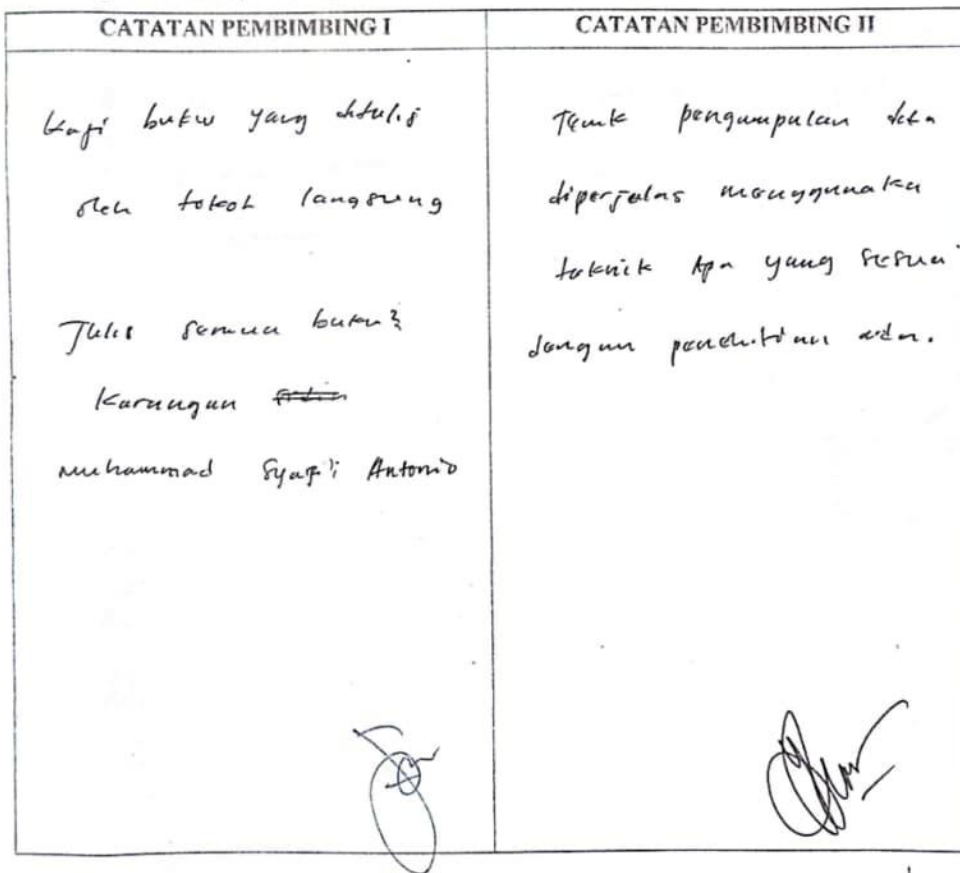 CATATAN PEMBIMBING I
Kaji buku yang ditulis
oleh tokoh langsung
Tulis semua buku2
Karangan
Muhammad Syafi'i Antonio
CATATAN PEMBIMBING II
pengumpulan data
diperjelas menggunaka
teknik Apa yang sesuai
dengan penelitian anda.